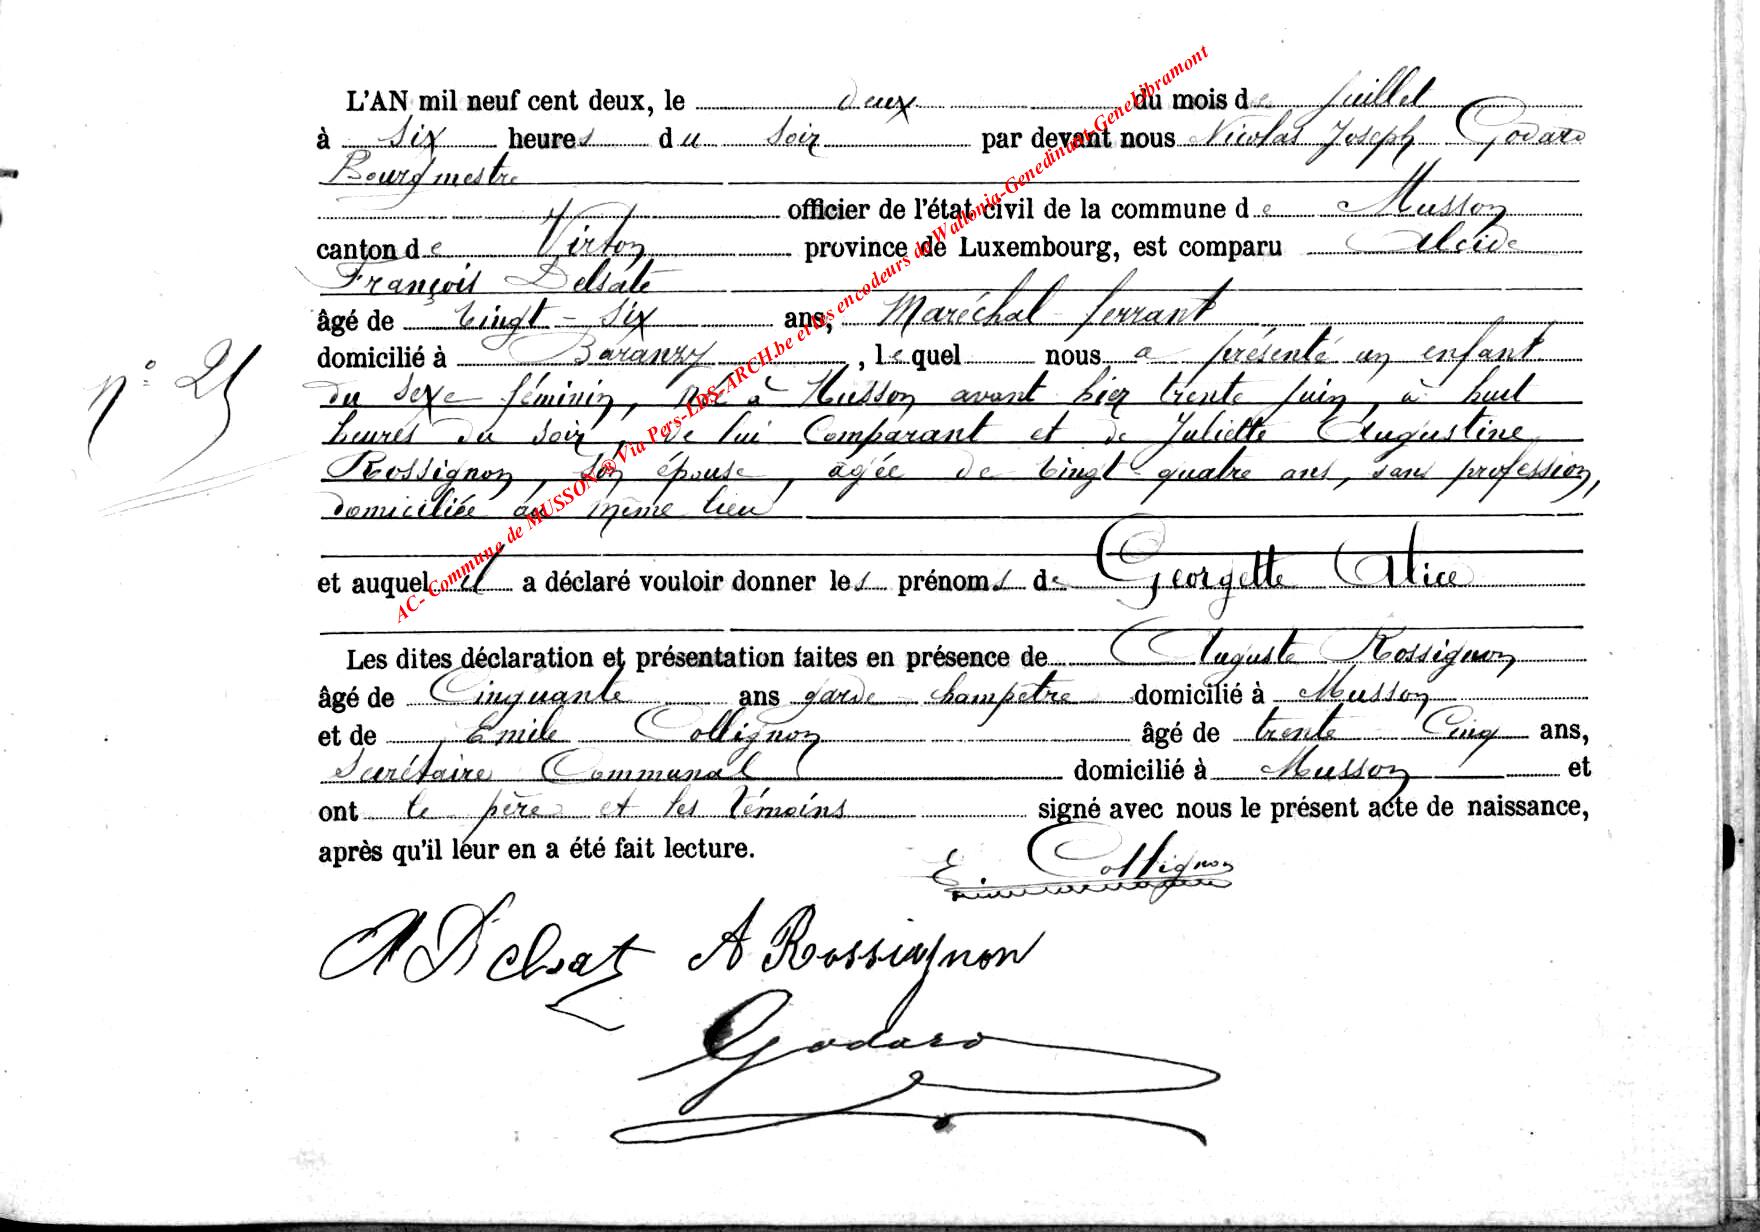 L'AN mil neuf cent deux, le deux du mois de juillet
à six heures du soir par devant nous Nicolas Joseph Godard
Bourgmestre
officier de l'état civil de la commune de Musson
canton de Virton province de Luxembourg, est comparu Alcide
François Delsate
âgé de vingt-six ans, Maréchal ferrant
domicilié à Baranzy, lequel nous a présenté un enfant
n° 25
du sexe féminin, né à Musson avant hier trente juin, à huit
heures du soir, de lui Comparant et de Juliette Augustine
Rossignon, son épouse, agée de vingt quatre ans, sans profession,
domiciliée au même lieu
et auquel il a déclaré vouloir donner les prénoms de Georgette Alice
Les dites déclaration et présentation faites en présence de Auguste Rossignon
âgé de Cinquante ans garde-champêtre domicilié à Musson
et de Emile Collignon âgé de trente Cinq ans,
Secrétaire Communal domicilié à Musson et
ont le père et les témoins signé avec nous le présent acte de naissance,
après qu'il leur en a été fait lecture.
E. Collignon
A Delsat A Rossignon
Godard
AC- Commune de MUSSON ® Via Pers-LDS-ARCH.be et les encodeurs de Wallonia-Genedinant-Genelibramont